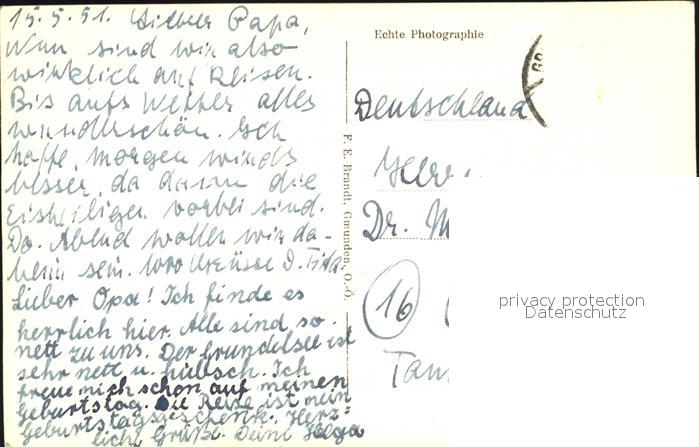 15.5.51. Lieber Papa,
Nun sind wir also
wirklich auf Reisen.
Bis aufs Wetter alles
wunderschön. Ich
hoffe, morgen wirds
besser, da dann die
Eisheiligen vorbei sind.
Do. Abend wollen wir da-
heim sein. Grüsse D.
Lieber Opa! Ich finde es
herrlich hier. Alle sind so
nett zu uns. Der Grundelsee ist
sehr nett u. hübsch. Ich
freue mich schon auf meinen
Geburtstag. Die Reise ist mein
Geburtstagsgeschenk. Herz=
liche Grüße. Deine Helga
F. E. Brandt, Gmunden, O.-Ö.
Echte Photographie
GR
Deutschland
Herr
Dr. M
16
Tau
privacy protection
Datenschutz